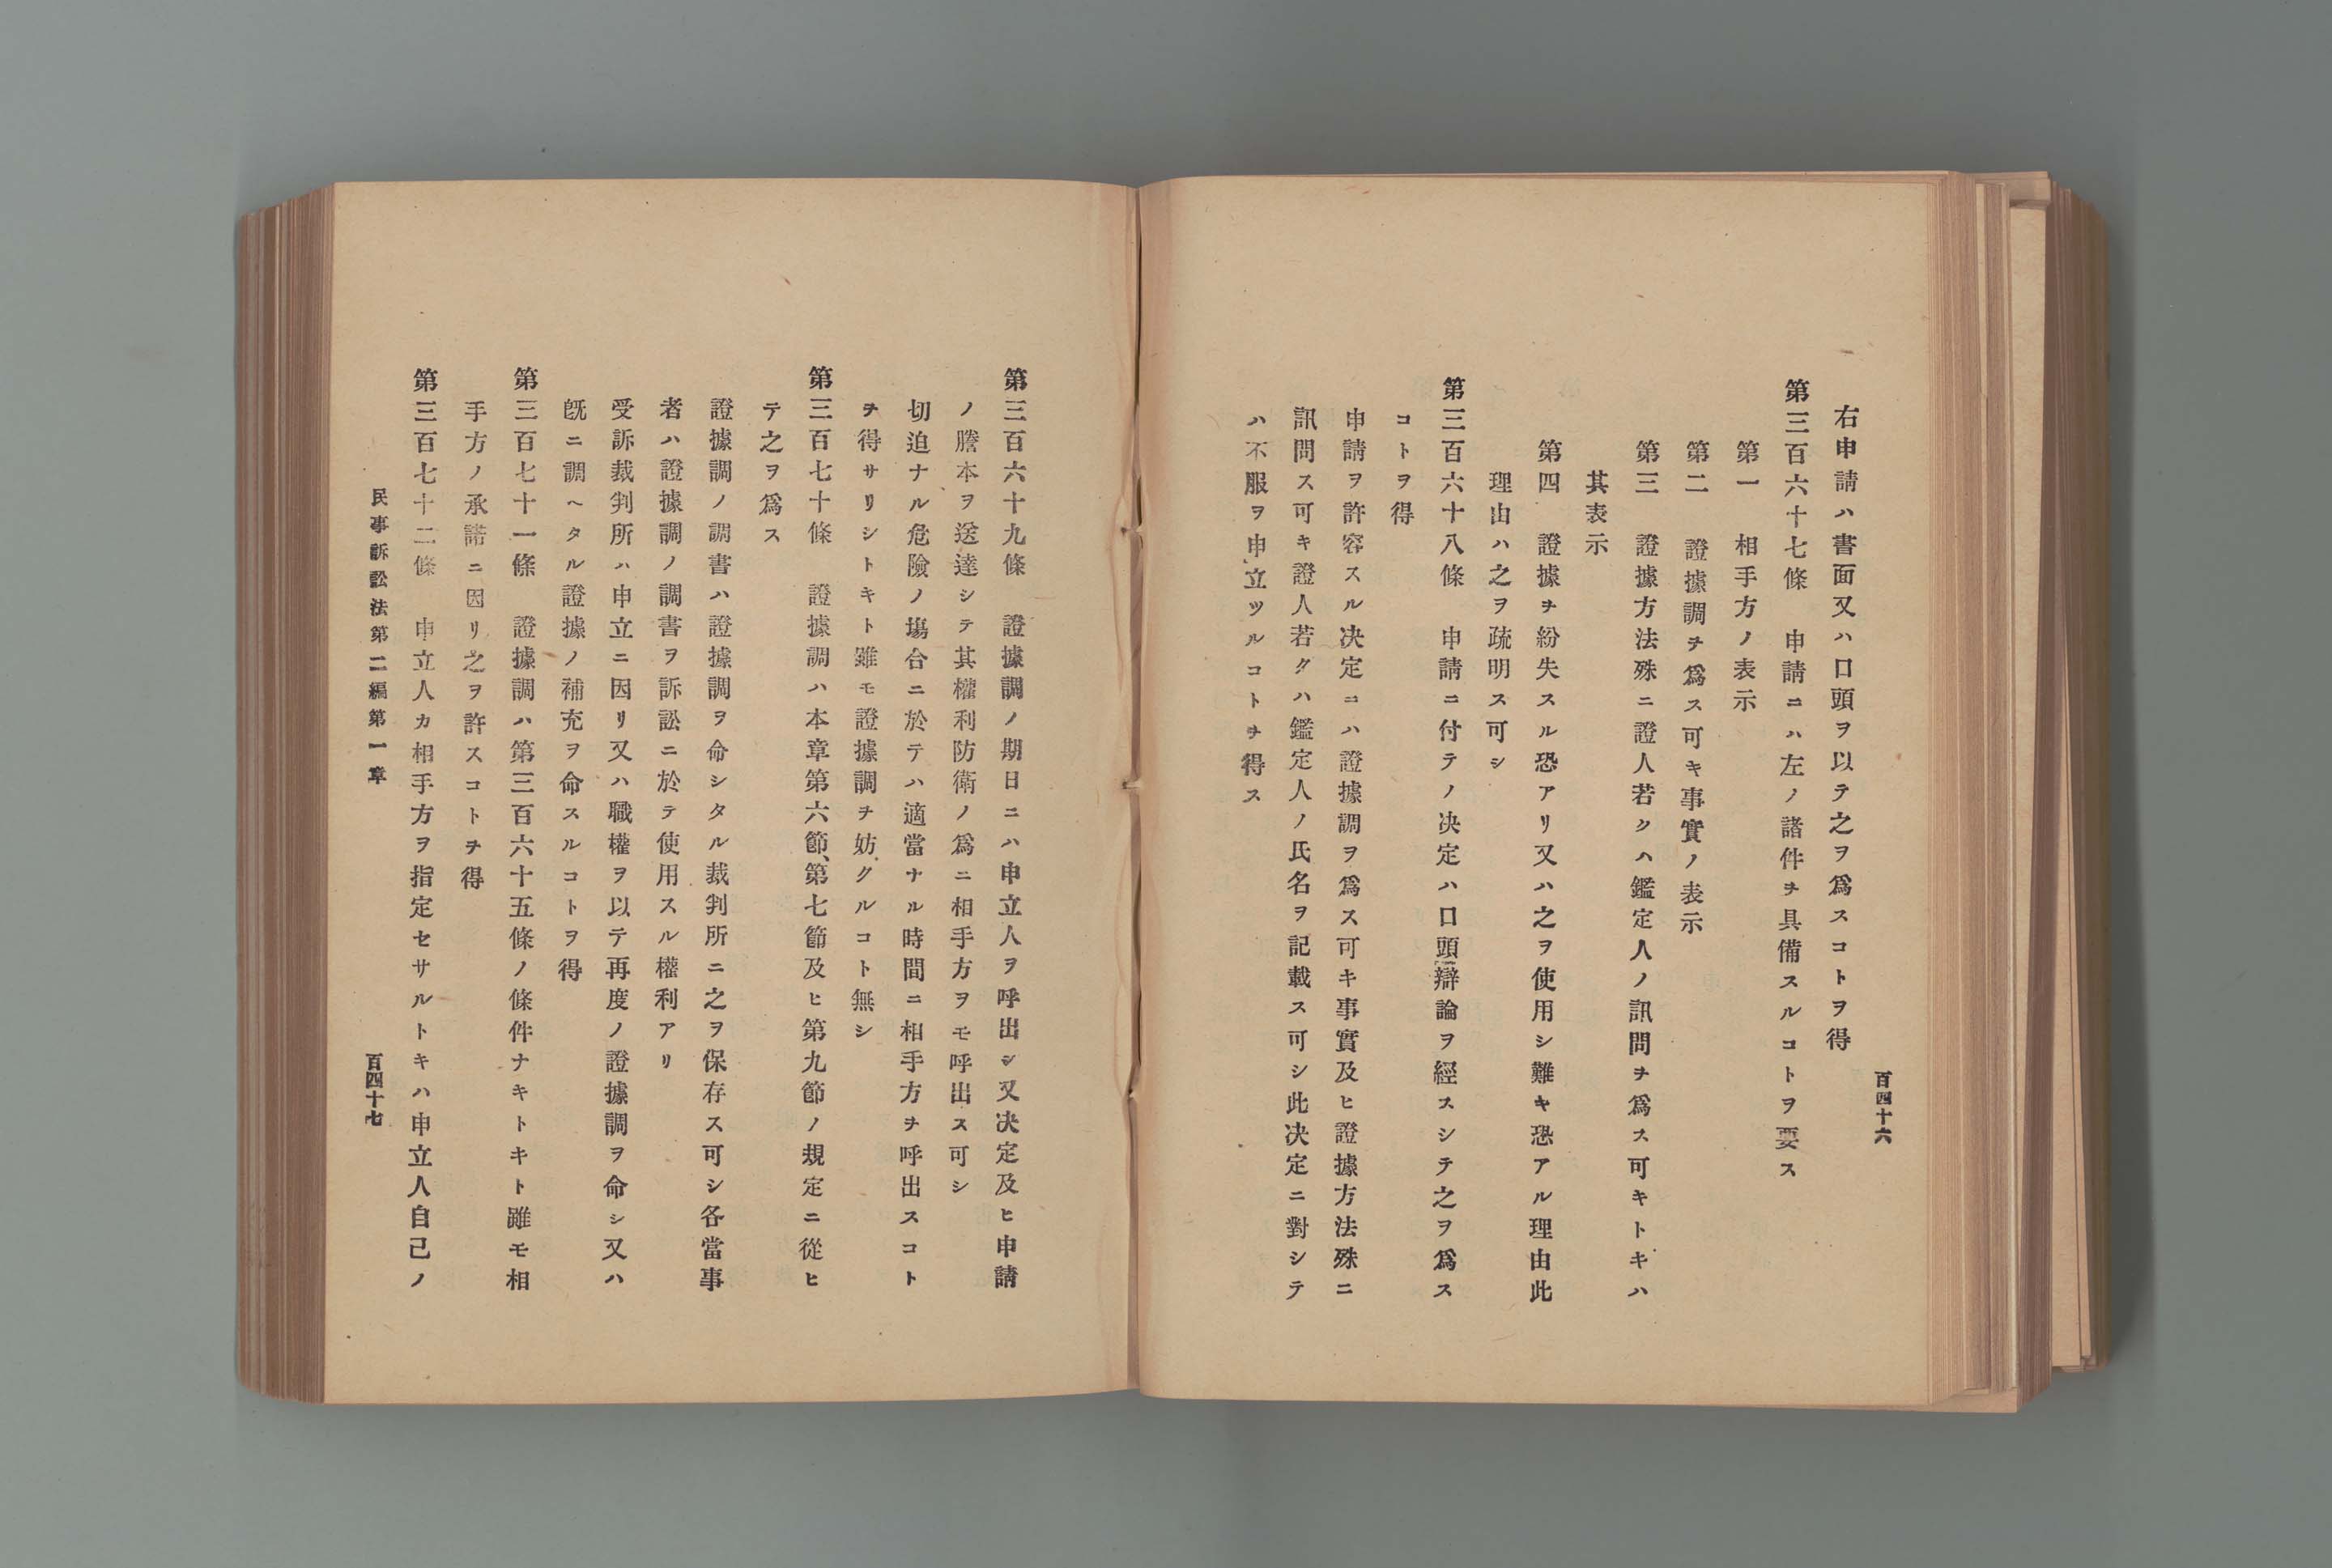 百四十六
右申請ハ書面又ハ口頭ヲ以テ之ヲ爲スコトヲ得
第三百六十七條　申請ニハ左ノ諸件ヲ具備スルコトヲ要ス
第一　相手方ノ表示
第二　證據調ヲ爲ス可キ事實ノ表示
第三　證據方法殊ニ證人若クハ鑑定人ノ訊問ヲ爲ス可キトキハ
其表示
第四　證據ヲ紛失スル恐アリ又ハ之ヲ使用シ難キ恐アル理由此
理由ハ之ヲ疏明ス可シ
第三百六十八條　申請ニ付テノ决定ハ口頭辯論ヲ經スシテ之ヲ爲ス
コトヲ得
申請ヲ許容スル决定ニハ證據調ヲ爲ス可キ事實及ヒ證據方法殊ニ
訊問ス可キ證人若クハ鑑定人ノ氏名ヲ記載ス可シ此决定ニ對シテ
ハ不服ヲ申立ツルコトヲ得ス
第三百六十九條　證據調ノ期日ニハ申立人ヲ呼出シ又决定及ヒ申請
ノ謄本ヲ送達シテ其權利防衛ノ爲ニ相手方ヲモ呼出ス可シ
切迫ナル危險ノ塲合ニ於テハ適當ナル時間ニ相手方ヲ呼出スコト
ヲ得サリシトキト雖モ證據調ヲ妨クルコト無シ
第三百七十條　證據調ハ本章第六節、第七節及ヒ第九節ノ規定ニ從ヒ
テ之ヲ爲ス
證據調ノ調書ハ證據調ヲ命シタル裁判所ニ之ヲ保存ス可シ各當事
者ハ證據調ノ調書ヲ訴訟ニ於テ使用スル權利アリ
受訴裁判所ハ申立ニ因リ又ハ職權ヲ以テ再度ノ證據調ヲ命シ又ハ
既ニ調ヘタル證據ノ補充ヲ命スルコトヲ得
第三百七十一條　證據調ハ第三百六十五條ノ條件ナキトキト雖モ相
手方ノ承諾ニ因リ之ヲ許スコトヲ得
第三百七十二條　申立人カ相手方ヲ指定セサルトキハ申立人自己ノ
民事訴訟法第二編第一章
百四十七